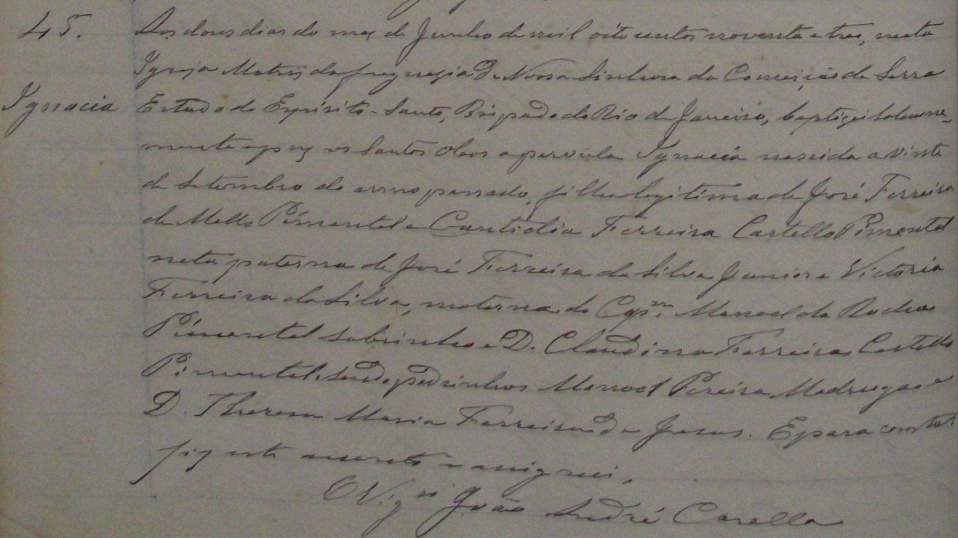 45.
Ignacia
Aos dous dias do mez de Junho de mil oito centos noventa e tres, nesta
Igreja Matriz da freguezia de Nossa Senhora da Conceição da Serra
Estado do Espirito-Santo, Bispado do Rio de Janeiro, baptizei solemne-
mente e puz os Santos Oleos a parvula Ignacia nascida a vinte
de Setembro do anno passado, filha legitima de José Ferreira
de Mello Pimentel e Ferreira Castello Pimentel
neta paterna de José Ferreira da Silva Junior e Victoria
Ferreira da Silva, materna do Cap.m Manoel da Rocha
Pimentel Sobrinho e D. Claudina Ferreira Castello
Pimentel. Sendo padrinhos Manoel Pereira Madruga e
D. Thereza Maria Ferreira de Jesus. E para constar
fiz este assento e assignei.
O Vig.ro João André Casella